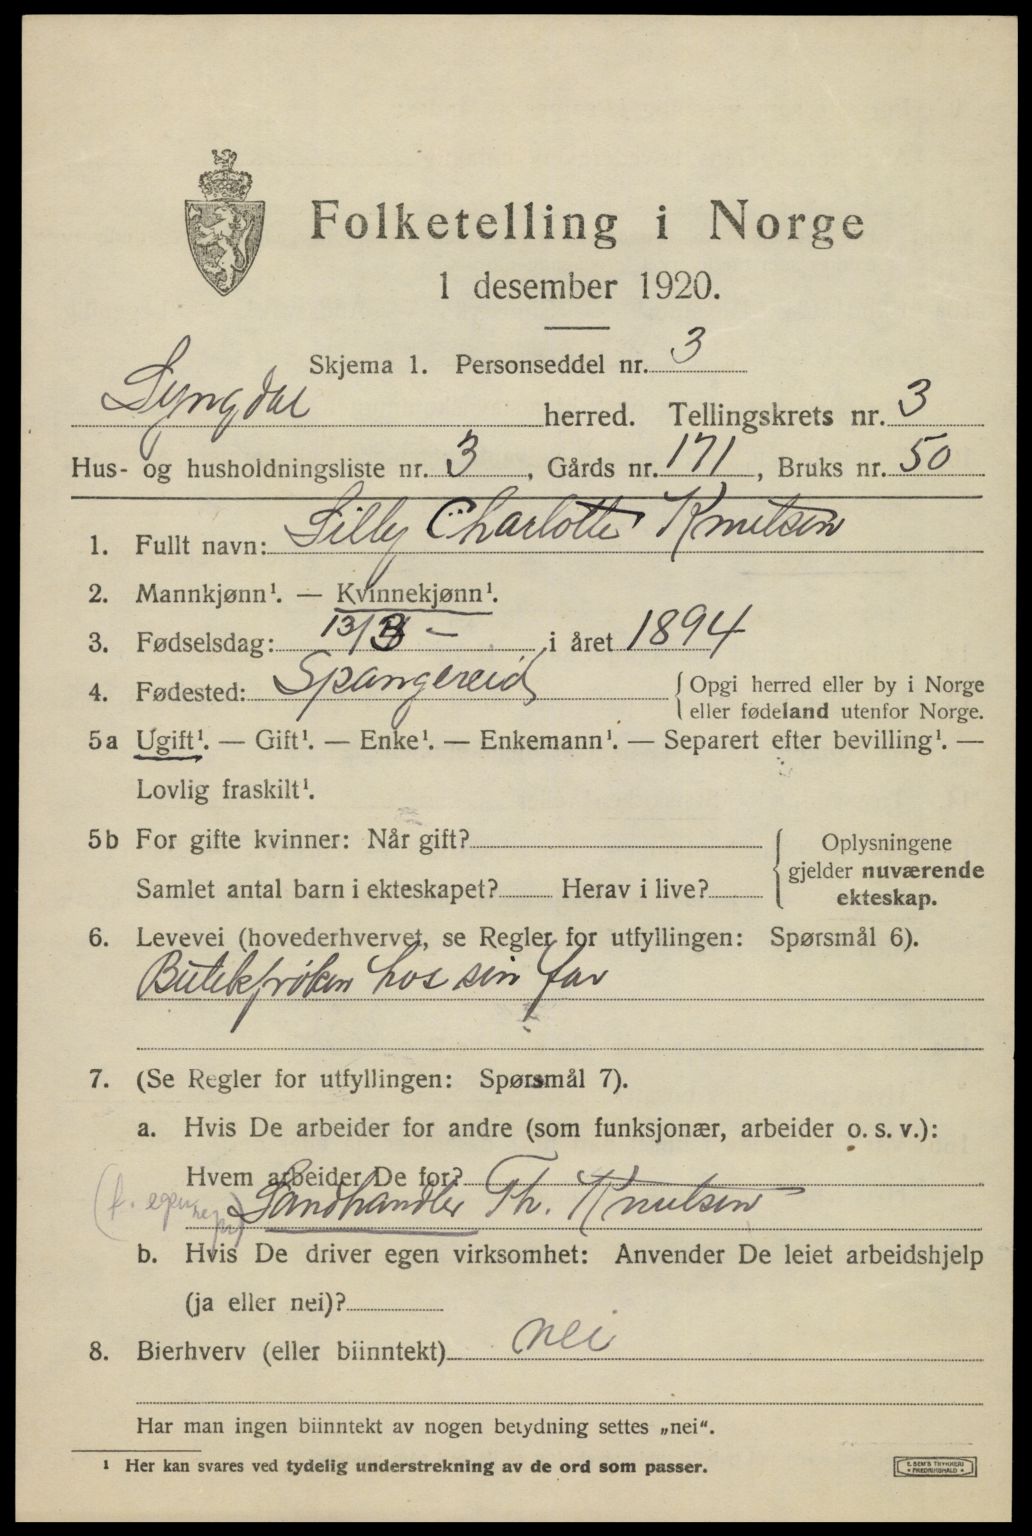 Folketelling i Norge
1 desember 1920.
Skjema 1. Personseddel nr. 3
Lyngdal herred. Tellingskrets nr. 3
Hus- og husholdningsliste nr. 3, Gårds nr. 171, Bruks nr. 50
1. Fullt navn: Lilly Charlotte Knutsen
2. Mannkjønn¹. — Kvinnekjønn¹.
3. Fødselsdag: 13/3 – i året 1894
4. Fødested: Spangereid { Opgi herred eller by i Norge
eller fødeland utenfor Norge.
5a Ugift¹. — Gift¹. — Enke¹. — Enkemann¹. — Separert efter bevilling¹. —
Lovlig fraskilt¹.
5b For gifte kvinner: Når gift?
Samlet antal barn i ekteskapet? Herav i live?
{ Oplysningene
gjelder nuværende
ekteskap.
6. Levevei (hovederhvervet, se Regler for utfyllingen: Spørsmål 6).
Butikfrøken hos sin far
7. (Se Regler for utfyllingen: Spørsmål 7).
a. Hvis De arbeider for andre (som funksjonær, arbeider o. s. v.):
Hvem arbeider De for?
Landhandler Th. Knutsen
b. Hvis De driver egen virksomhet: Anvender De leiet arbeidshjelp
(ja eller nei)?
8. Bierhverv (eller biinntekt) nei
Har man ingen biinntekt av nogen betydning settes „nei“.
¹ Her kan svares ved tydelig understrekning av de ord som passer.
E. SEM'S TRYKKERI
FREDRIKSHALD